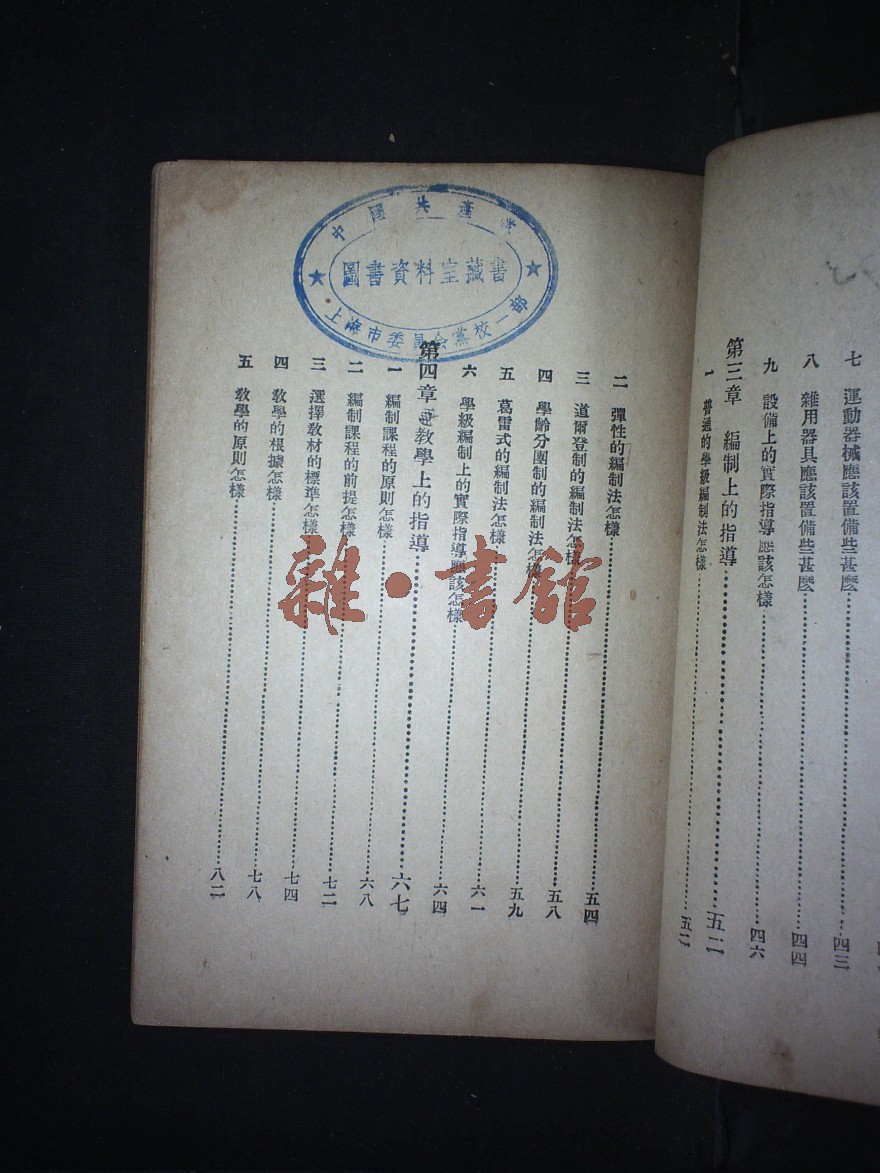 七 運動器械應該置備些甚麼 四三
八 雜用器具應該置備些甚麼 四四
九 設備上的實際指導應該怎樣 四六
第三章 編制上的指導 五二
一 普通的學級編制法怎樣 五二
二 彈性的編制法怎樣 五四
三 道爾登制的編制法怎樣 五八
四 學齡分團制的編制法怎樣 五九
五 葛雷式的編制法怎樣 六一
六 學級編制上的實際指導應該怎樣 六四
第四章 教學上的指導 六七
一 編制課程的原則怎樣 六八
二 編制課程的前提怎樣 七二
三 選擇教材的標準怎樣 七四
四 教學的根據怎樣 七八
五 教學的原則怎樣 八二
中國共產黨
圖書資料室藏書
市委員會黨校一部
雜·書館